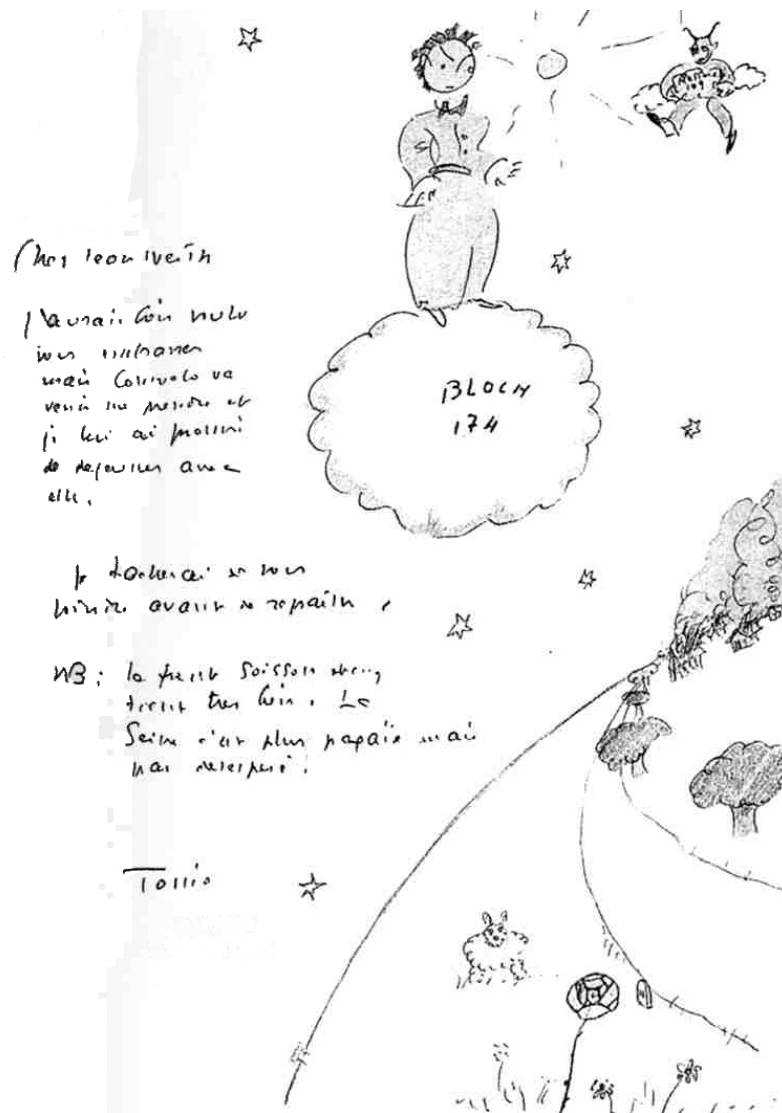 BLOCH
174
Cher Leon Werth
J'aurais bien voulu
vous embrasser
mais Consuelo va
venir me prendre et
je lui ai promis
de dejeuner avec
elle.
Je tacherai de vous
avant de repartir.
NB : le front Soissons
tient tres bien. La
Seine c'est plus pagaïe mais
pas desesperé !
Tonio